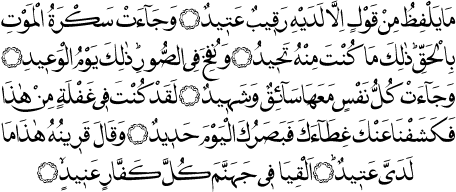 مَا يَلْفِظُ مِنْ قَوْلٍ اِلَّا لَدَيْهِ رَقٖيبٌ عَتٖيدٌ ۝ وَجَٓاءَتْ سَكْرَةُ الْمَوْتِ
بِالْحَقِّؕ ذٰلِكَ مَا كُنْتَ مِنْهُ تَحٖيدُ ۝ وَنُفِخَ فِى الصُّورِؕ ذٰلِكَ يَوْمُ الْوَعٖيدِ ۝
وَجَٓاءَتْ كُلُّ نَفْسٍ مَعَهَا سَٓائِقٌ وَشَهٖيدٌ ۝ لَقَدْ كُنْتَ فٖى غَفْلَةٍ مِنْ هٰذَا
فَكَشَفْنَا عَنْكَ غِطَٓاءَكَ فَبَصَرُكَ الْيَوْمَ حَدٖيدٌ ۝ وَقَالَ قَرٖينُهُ هٰذَا مَا
لَدَىَّ عَتٖيدٌؕ ۝ اَلْقِيَا فٖى جَهَنَّمَ كُلَّ كَفَّارٍ عَنٖيدٍۙ ۝